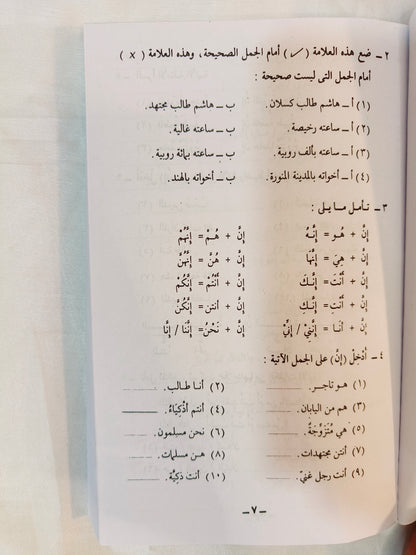 ٢ ـ ضع هذه العلامة (✓) أمام الجمل الصحيحة، وهذه العلامة (×)
أمام الجمل التى ليست صحيحة :
(١) أ ـ هاشم طالب كسلان. ب ـ هاشم طالب مجتهد.
(٢) أ ـ ساعته رخيصة. ب ـ ساعته غالية.
(٣) أ ـ ساعته بألف روبية. ب ـ ساعته بمائة روبية.
(٤) أ ـ أخواته بالمدينة المنورة. ب ـ أخواته بالهند.
٣ ـ تأمل ما يلى :
إِنَّ + هُـو = إِنَّـهُ إِنَّ + هُـمْ = إِنَّهُمْ
إِنَّ + هِيَ = إِنَّهَا إِنَّ + هُنَّ = إِنَّهُنَّ
إِنَّ + أَنْتَ = إِنَّـكَ إِنَّ + أَنْتُمْ = إِنَّكُمْ
إِنَّ + أَنْتِ = إِنَّـكِ إِنَّ + أنتن = إِنَّكُنَّ
إِنَّ + أنَـا = إِنَّنِيْ / إِنِّيْ إِنَّ + نَحْنُ = إِنَّنَا / إِنَّا
٤ ـ أَدْخِلْ (إِنَّ) على الجمل الآتية :
(١) هـو تاجـر. (٢) أنـا طـالب.
(٣) هم من اليابان. (٤) أنتم أذْكِيَاءُ.
(٥) هي مُتَزَوِّجَةٌ. (٦) نحن مسلمون.
(٧) أنتن مجتهدات. (٨) هـن مسلمات.
(٩) أنت رجل غنيّ. (١٠) أنت ذكيَّة.
ـ ٧ ـ